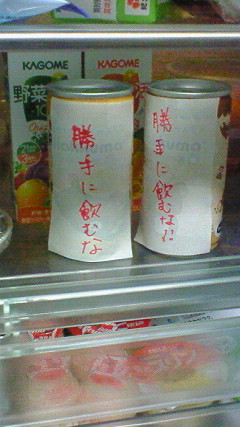 KAGOME
KAGOME
野菜
勝手に飲むな
勝手に飲むな!!